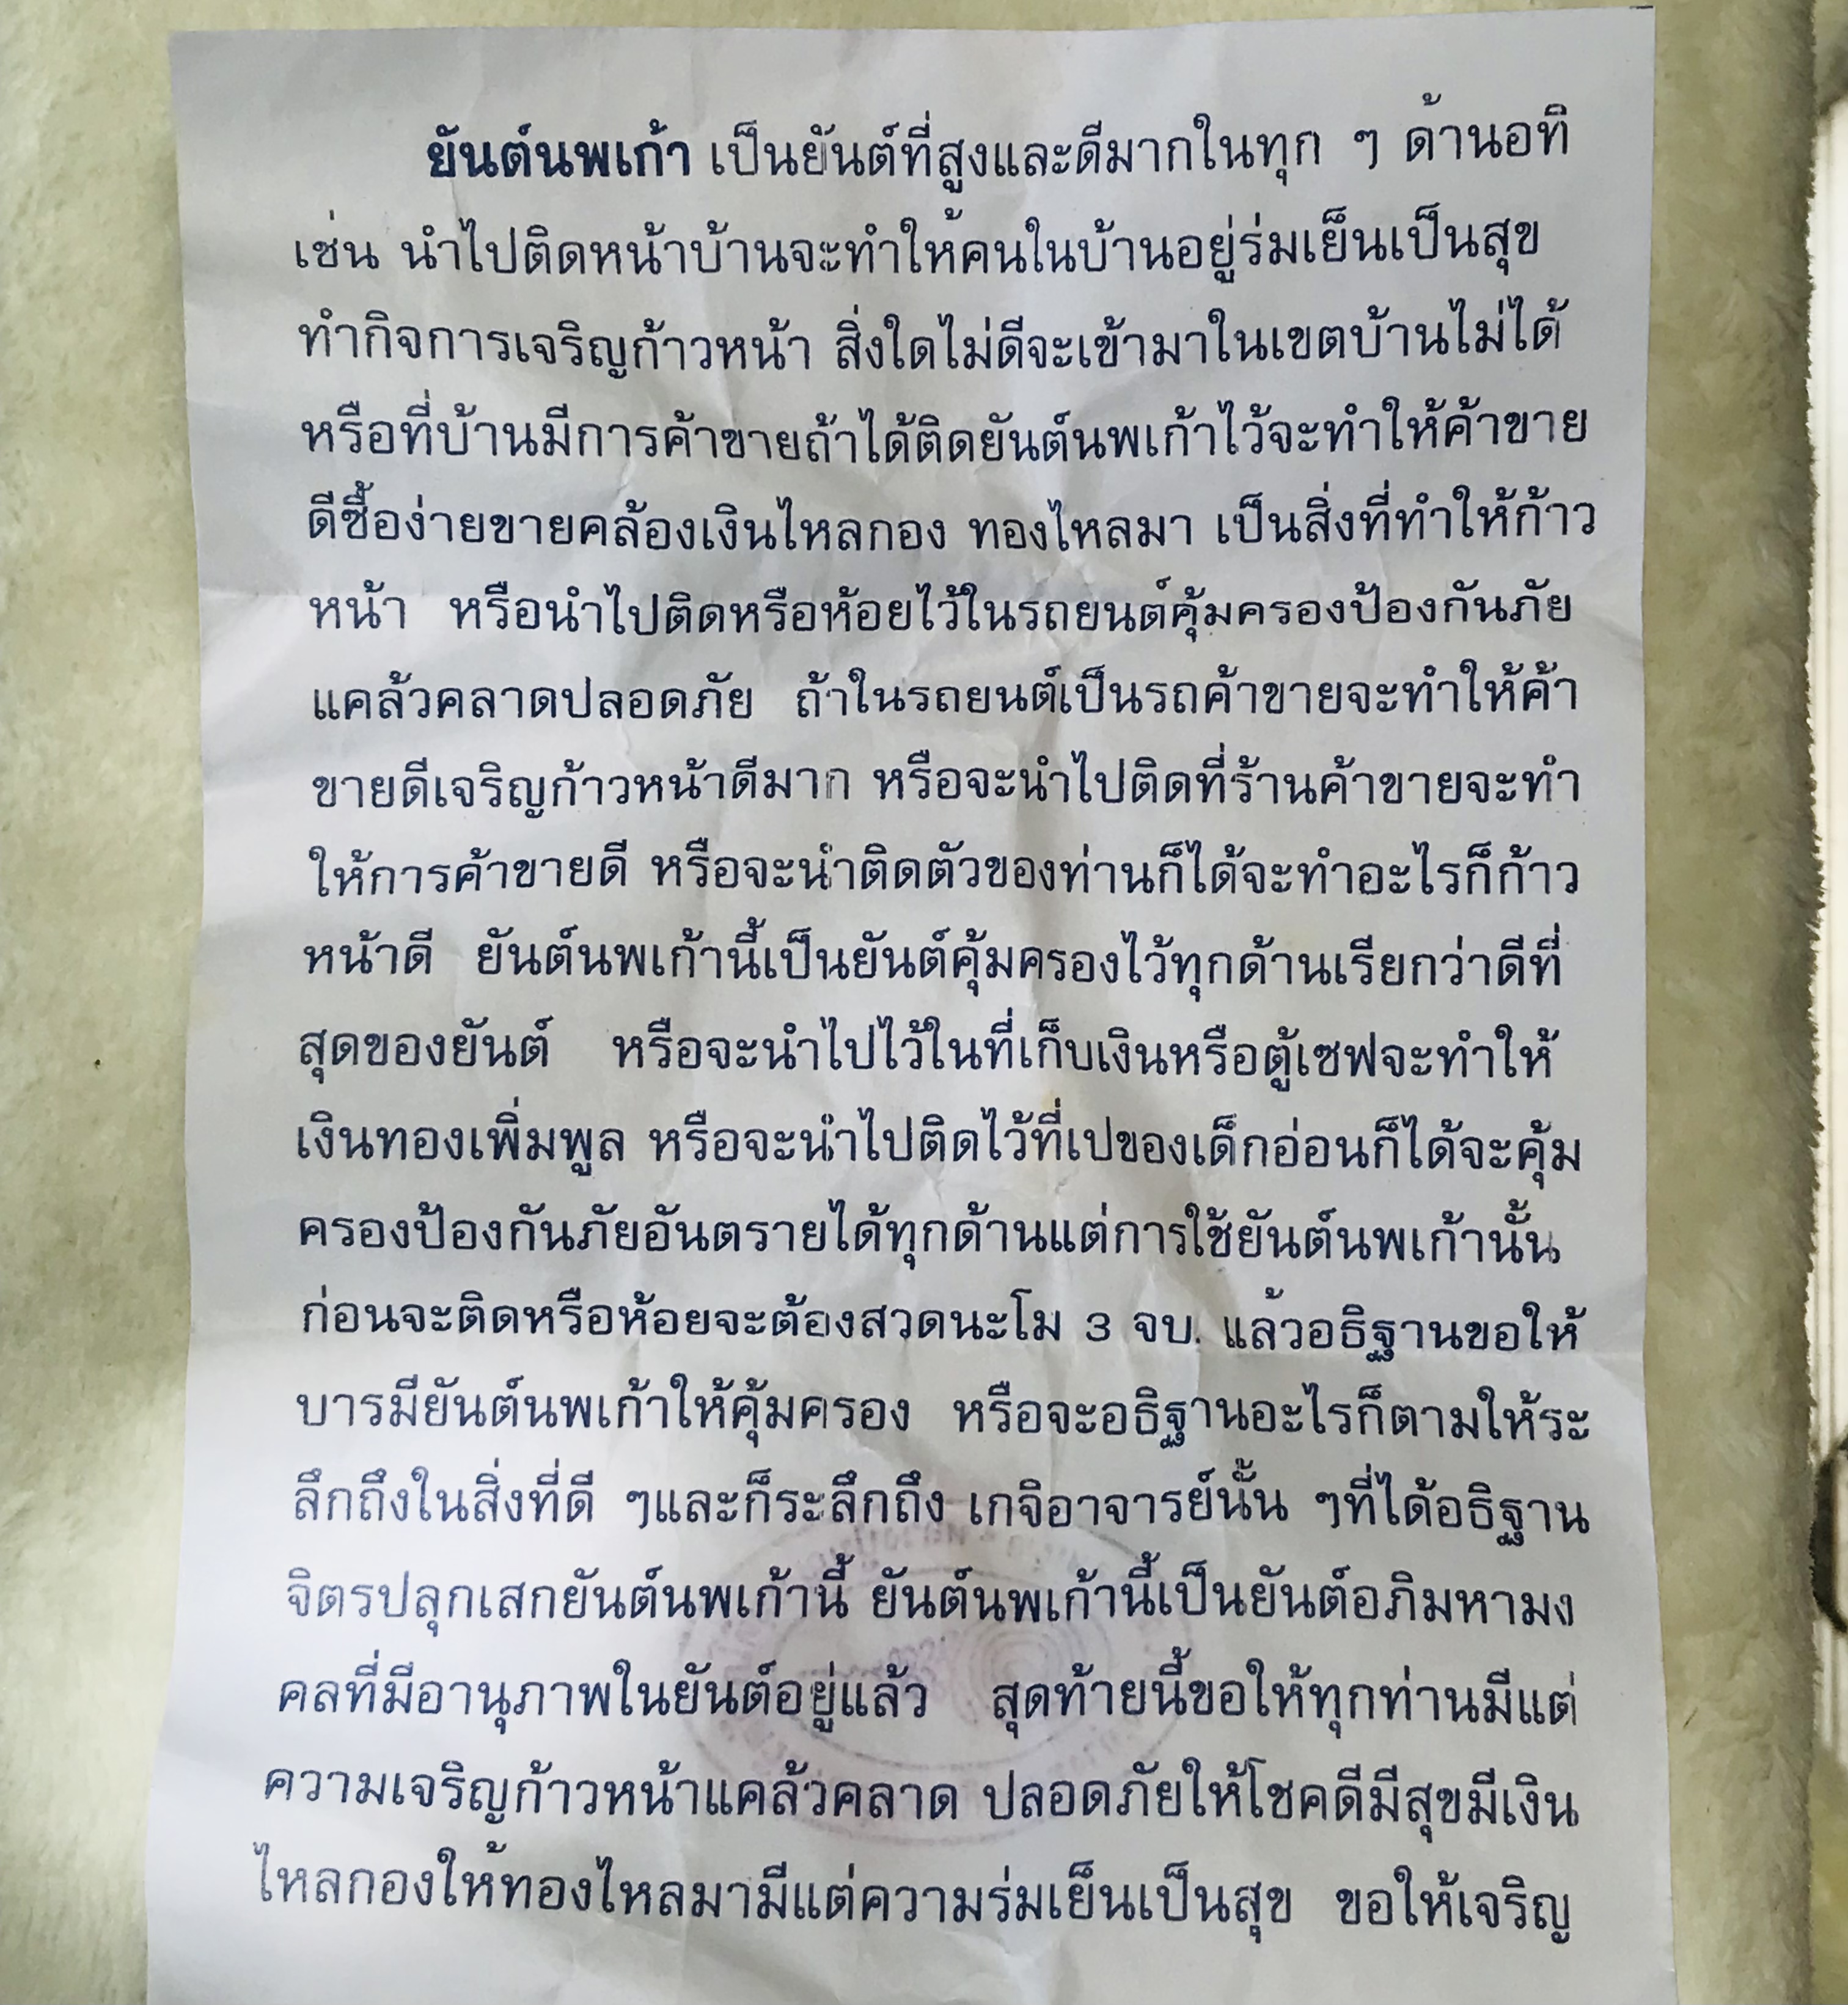 ยันต์นพเก้า เป็นยันต์ที่สูงและดีมากในทุก ๆ ด้านอทิ
เช่น นำไปติดหน้าบ้านจะทำให้คนในบ้านอยู่ร่มเย็นเป็นสุข
ทำกิจการเจริญก้าวหน้า สิ่งใดไม่ดีจะเข้ามาในเขตบ้านไม่ได้
หรือที่บ้านมีการค้าขายถ้าได้ติดยันต์นพเก้าไว้จะทำให้ค้าขาย
ดีซื้อง่ายขายคล้องเงินไหลกอง ทองไหลมา เป็นสิ่งที่ทำให้ก้าว
หน้า หรือนำไปติดหรือห้อยไว้ในรถยนต์คุ้มครองป้องกันภัย
แคล้วคลาดปลอดภัย ถ้าในรถยนต์เป็นรถค้าขายจะทำให้ค้า
ขายดีเจริญก้าวหน้าดีมาก หรือจะนำไปติดที่ร้านค้าขายจะทำ
ให้การค้าขายดี หรือจะนำติดตัวของท่านก็ได้จะทำอะไรก็ก้าว
หน้าดี ยันต์นพเก้านี้เป็นยันต์คุ้มครองไว้ทุกด้านเรียกว่าดีที่
สุดของยันต์ หรือจะนำไปไว้ในที่เก็บเงินหรือตู้เซฟจะทำให้
เงินทองเพิ่มพูล หรือจะนำไปติดไว้ที่เปของเด็กอ่อนก็ได้จะคุ้ม
ครองป้องกันภัยอันตรายได้ทุกด้านแต่การใช้ยันต์นพเก้านั้น
ก่อนจะติดหรือห้อยจะต้องสวดนะโม 3 จบ. แล้วอธิฐานขอให้
บารมียันต์นพเก้าให้คุ้มครอง หรือจะอธิฐานอะไรก็ตามให้ระ
ลึกถึงในสิ่งที่ดี ๆและก็ระลึกถึง เกจิอาจารย์นั้น ๆที่ได้อธิฐาน
จิตรปลุกเสกยันต์นพเก้านี้ ยันต์นพเก้านี้เป็นยันต์อภิมหามง
คลที่มีอานุภาพในยันต์อยู่แล้ว สุดท้ายนี้ขอให้ทุกท่านมีแต่
ความเจริญก้าวหน้าแคล้วคลาด ปลอดภัยให้โชคดีมีสุขมีเงิน
ไหลกองให้ทองไหลมามีแต่ความร่มเย็นเป็นสุข ขอให้เจริญ